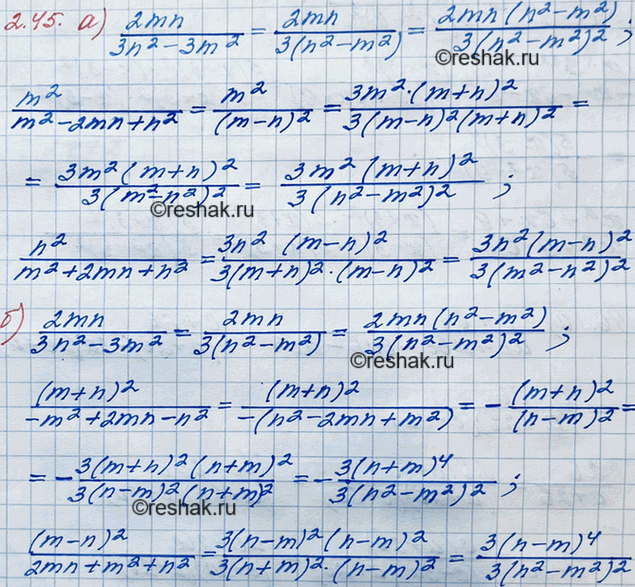 2.45. а) 2mn/(3n²-3m²) = 2mn/(3(n²-m²)) = 2mn(n²-m²)/(3(n²-m²)²);
©reshak.ru
m²/(m²-2mn+n²) = m²/(m-n)² = 3m²·(m+n)²/(3(m-n)²(m+n)²) =
= 3m²(m+n)²/(3(m²-n²)²) = 3m²(m+n)²/(3(n²-m²)²);
©reshak.ru
n²/(m²+2mn+n²) = 3n²(m-n)²/(3(m+n)²·(m-n)²) = 3n²(m-n)²/(3(m²-n²)²)
б) 2mn/(3n²-3m²) = 2mn/(3(n²-m²)) = 2mn(n²-m²)/(3(n²-m²)²);
©reshak.ru
(m+n)²/(-m²+2mn-n²) = (m+n)²/(-(n²-2mn+m²)) = -(m+n)²/(n-m)² =
= -3(m+n)²(n+m)²/(3(n-m)²(n+m)²) = -3(n+m)⁴/(3(n²-m²)²);
©reshak.ru
(m-n)²/(2mn+m²+n²) = 3(n-m)²(n-m)²/(3(n+m)²·(n-m)²) = 3(n-m)⁴/(3(n²-m²)²)